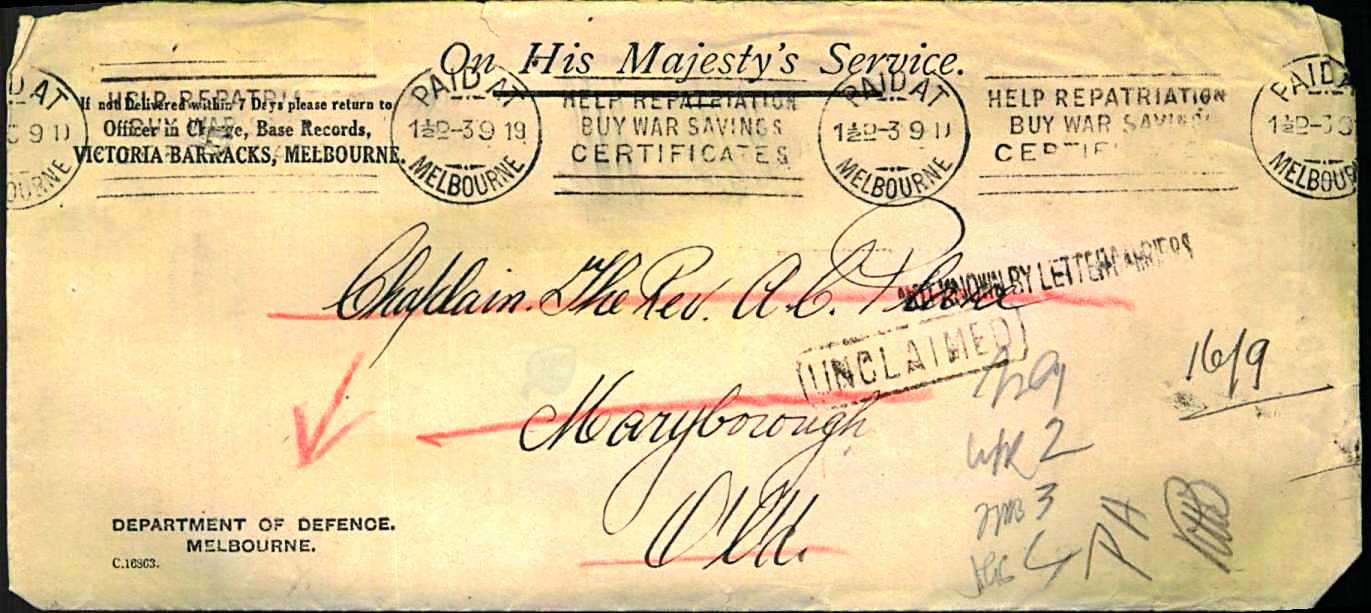 On His Majesty's Service.
If not Delivered within 7 Days please return to
Officer in Charge, Base Records,
VICTORIA BARRACKS, MELBOURNE.
D AT
9 1
OURNE
HELP REPATRIATION
BUY WAR
PAID AT
1½D-3 9 19
MELBOURNE
HELP REPATRIATION
BUY WAR SAVINGS
CERTIFICATES
PAID AT
1½D-3 9 1
MELBOURNE
HELP REPATRIATION
BUY WAR SAVINGS
CERTIFI
PAID A
1½D-3 9
MELBOUR
Chaplain. The Rev. A. C.
NOT KNOWN BY LETTER CARRIERS
UNCLAIMED
Maryborough
Qld.
16/9
2
3
PA
DEPARTMENT OF DEFENCE.
MELBOURNE.
C.16863.